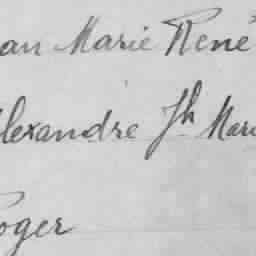 ean Marie René
lexandre Jh Marie
oger